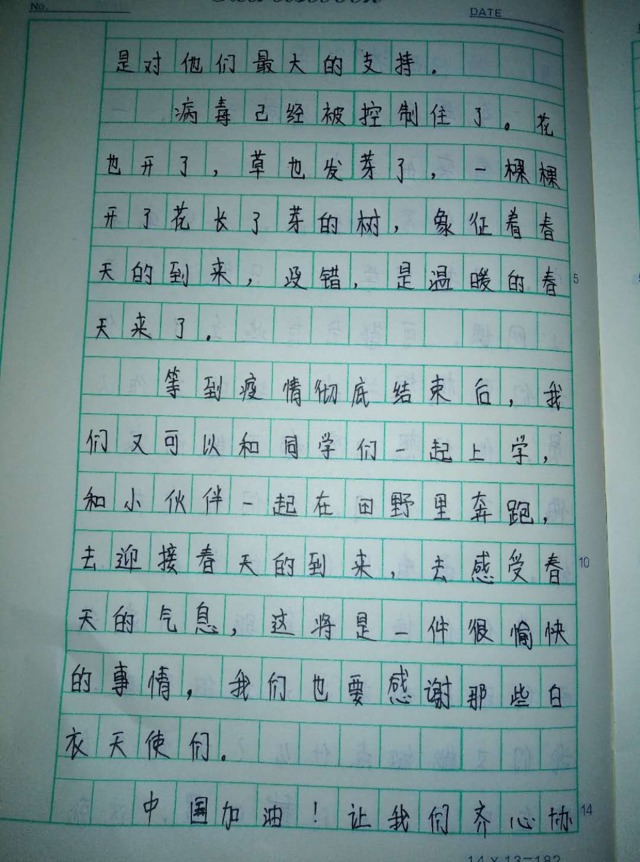 No.
DATE
是对他们最大的支持.
病毒已经被控制住了。花
也开了，草也发芽了，一棵棵
开了花长了芽的树，象征着春
天的到来，没错，是温暖的春
5
天来了.
等到疫情彻底结束后，我
们又可以和同学们一起上学，
和小伙伴一起在田野里奔跑，
去迎接春天的到来，去感受春
10
天的气息，这将是一件很愉快
的事情，我们也要感谢那些白
衣天使们.
中国加油！让我们齐心协
14
14×13=182